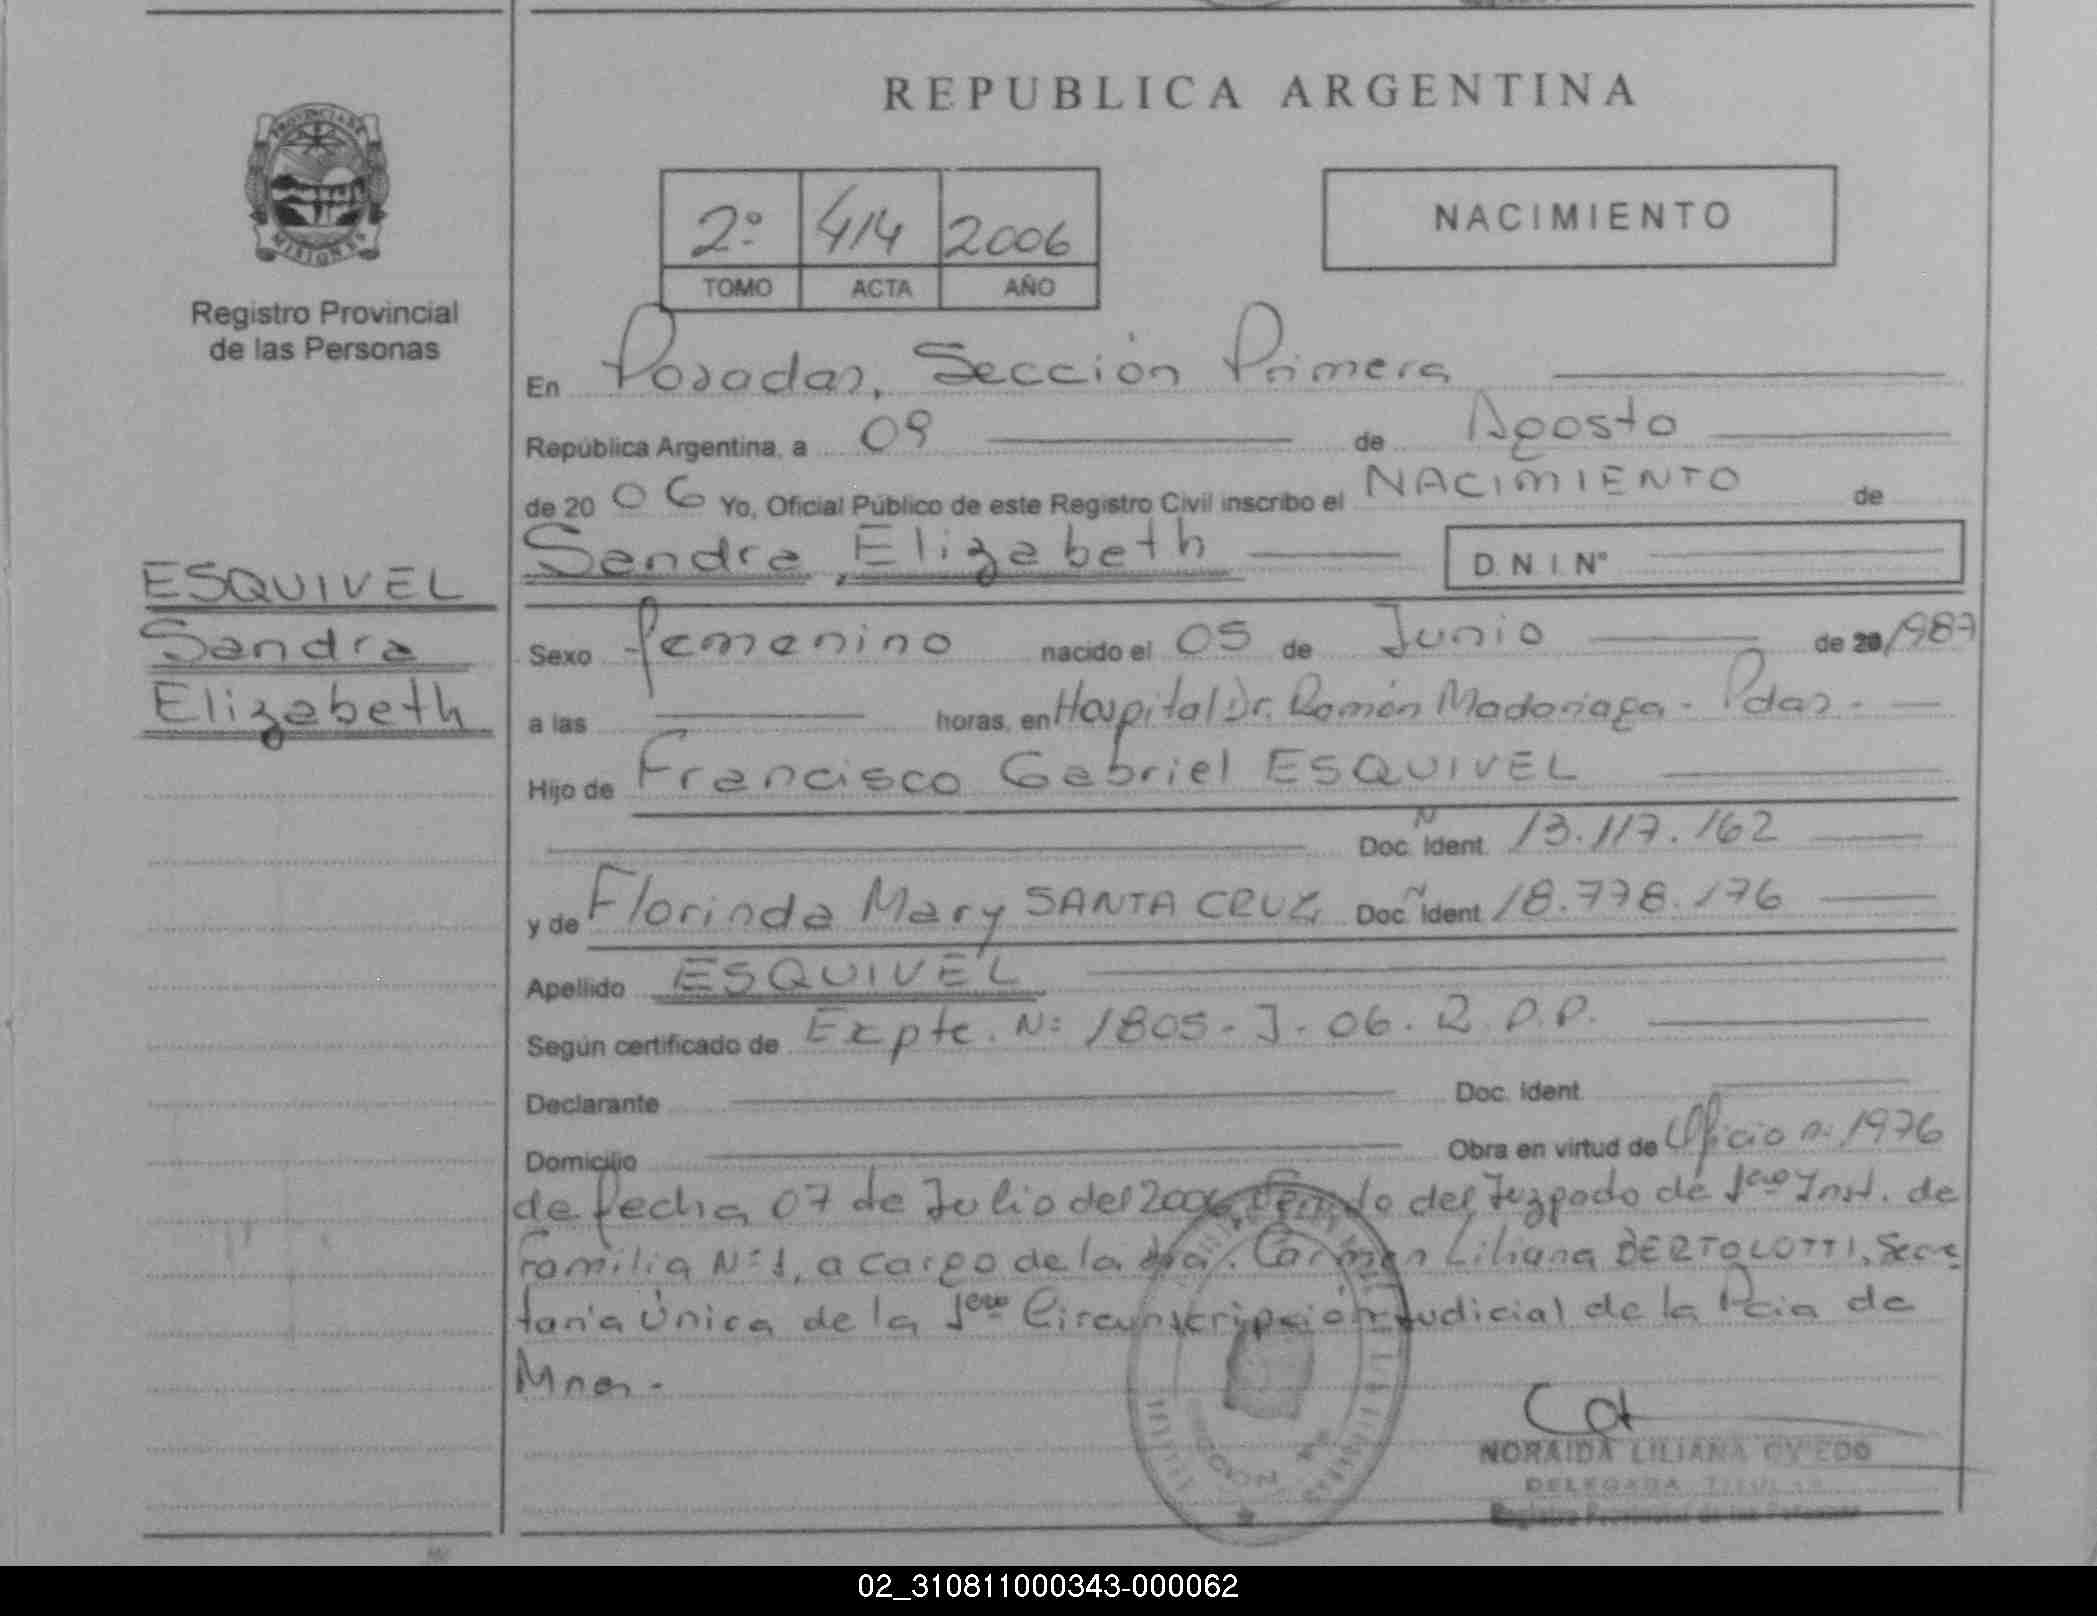 REPUBLICA ARGENTINA
PROVINCIA DE
MISIONES
Registro Provincial
de las Personas
2º 414 2006
TOMO ACTA AÑO
NACIMIENTO
En Posadas, Sección Primera
República Argentina, a 09 de Agosto
de 20 06 Yo, Oficial Público de este Registro Civil inscribo el NACIMIENTO de
Sandra, Elizabeth D.N.I. Nº
ESQUIVEL
Sandra
Elizabeth
Sexo femenino nacido el 05 de Junio de 20/1987
a las horas, en Hospital Dr. Ramón Madariaga - Pdas.
Hijo de Francisco Gabriel ESQUIVEL
Doc. Ident. N 13.117.162
y de Florinda Mary SANTA CRUZ Doc. Ident N 18.778.176
Apellido ESQUIVEL
Según certificado de Expte. Nº 1805-J-06. R.P.P.
Declarante Doc. Ident.
Domicilio Obra en virtud de Oficio n: 1976
de fecha 07 de Julio del 2006 del Juzgado de 1era Inst. de
Familia Nº 1, a cargo de la Dra. Carmen Liliana BERTOLOTTI, Secre
taría Única de la 1era Circunscripción Judicial de la Pcia de
Mnes.
NORAIDA LILIANA OVIEDO
DELEGADA TITULAR
Registro Provincial de las Personas
02_310811000343-000062